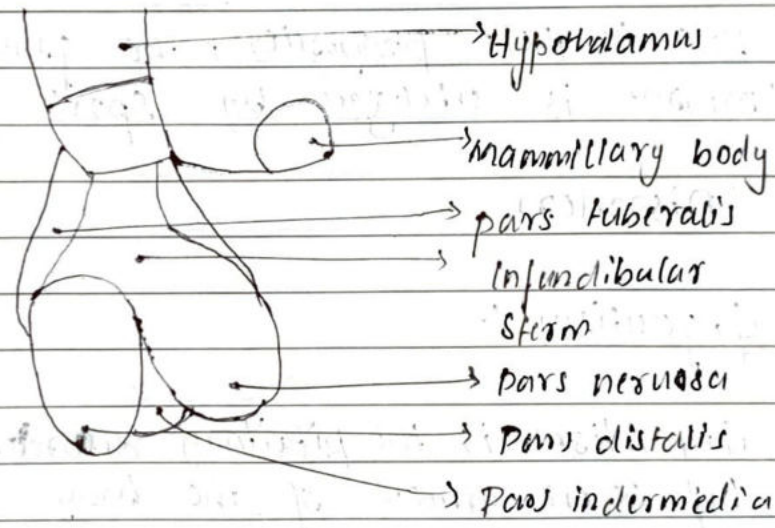 Hypothalamus
Mammillary body
pars tuberalis
Infundibular
Sterm
Pars nervosa
Pars distalis
Pars indermedia